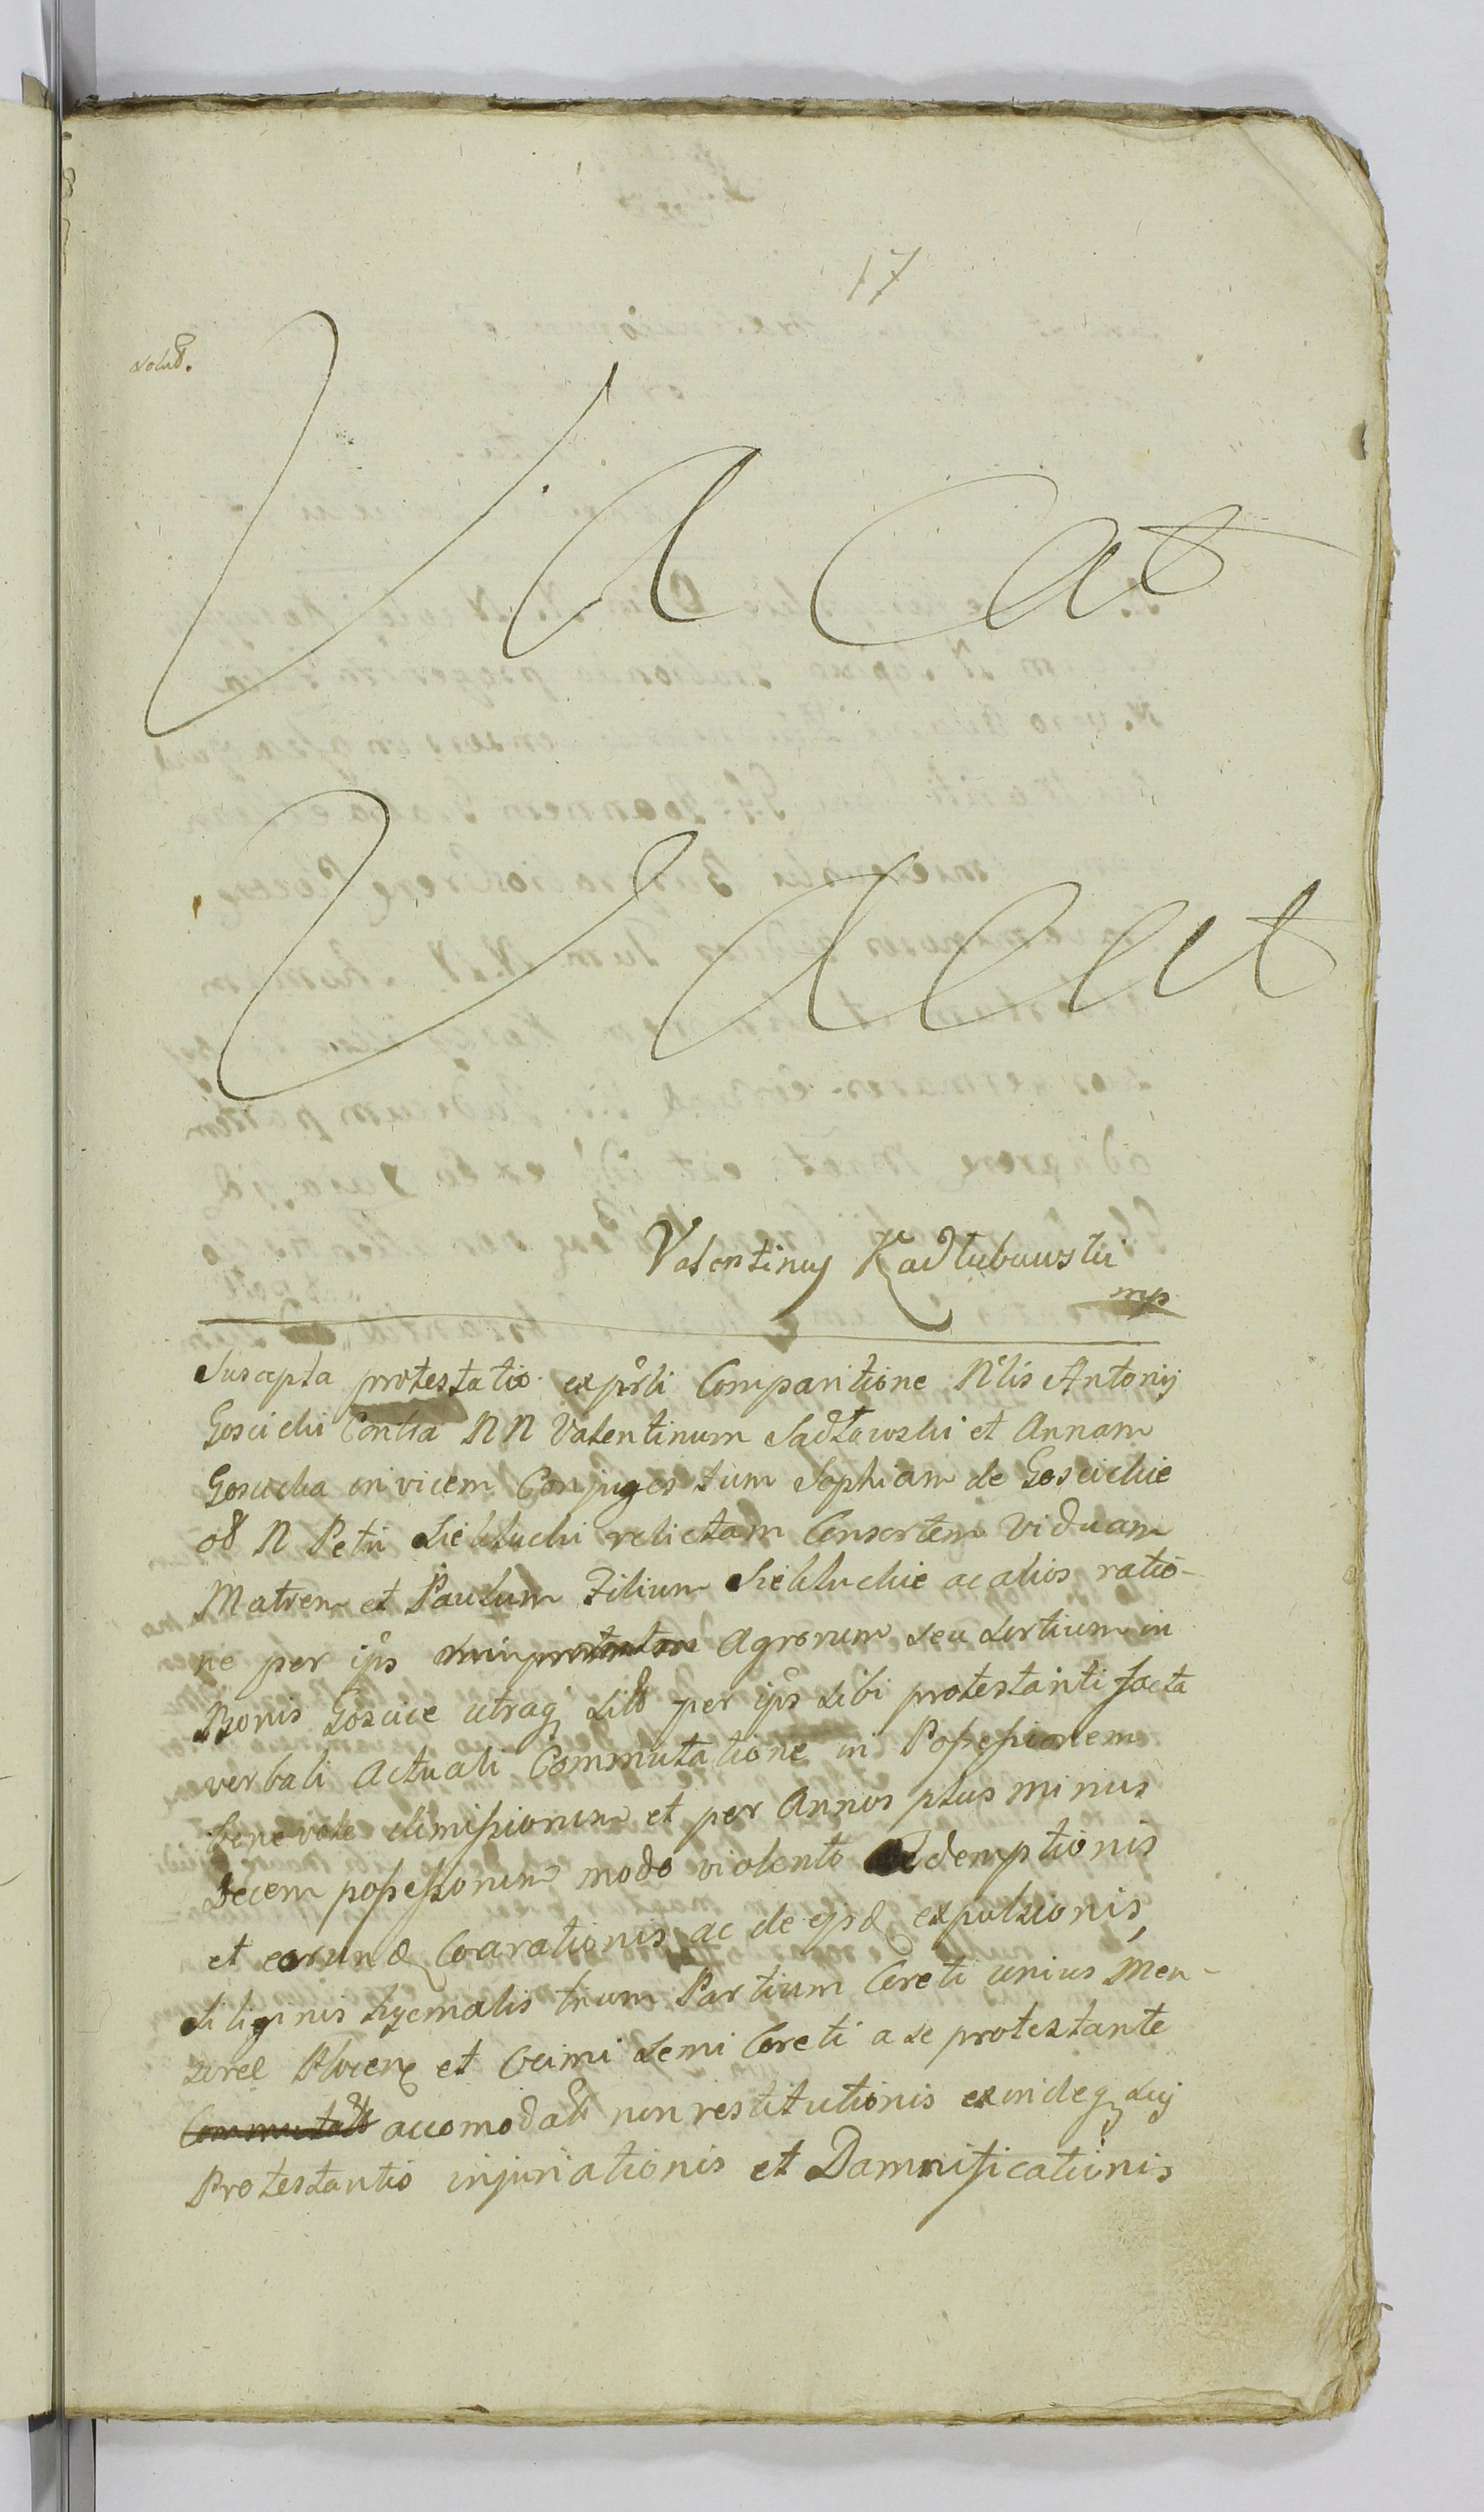 17
Vacat
Vacat
Valentinus Kadłubowski
mp
Suscepta protestatio ex prsli Comparitione Nlis Antonij
Goscicki Contra NN Valentinum Sadłowski et Annam
Goscicka invicem Conjuges tum Sophiam de Goscickie
ol N Petri relictam Consortem Viduam
Matrem et Paulum Filium ac alios ratio-
ne per ips Agrorum seu Sortium in
Bonis Goscice utraq per ips sibi protestanti facta
verbali Actuali Commutatione in Possessionem
benevole dimissiorum et per Annos plus minus
Decem possessorum modo violento Ademptionis
et eorund Coarationis ac de eisd expulsionis,
Siliginis hyemalis trium Partium Coreti unius Men-
surae Plocen et Semi Coreti a se protestante
accomodati non restitutionis exindeq sui
Protestantis injuriationis et Damnificationis